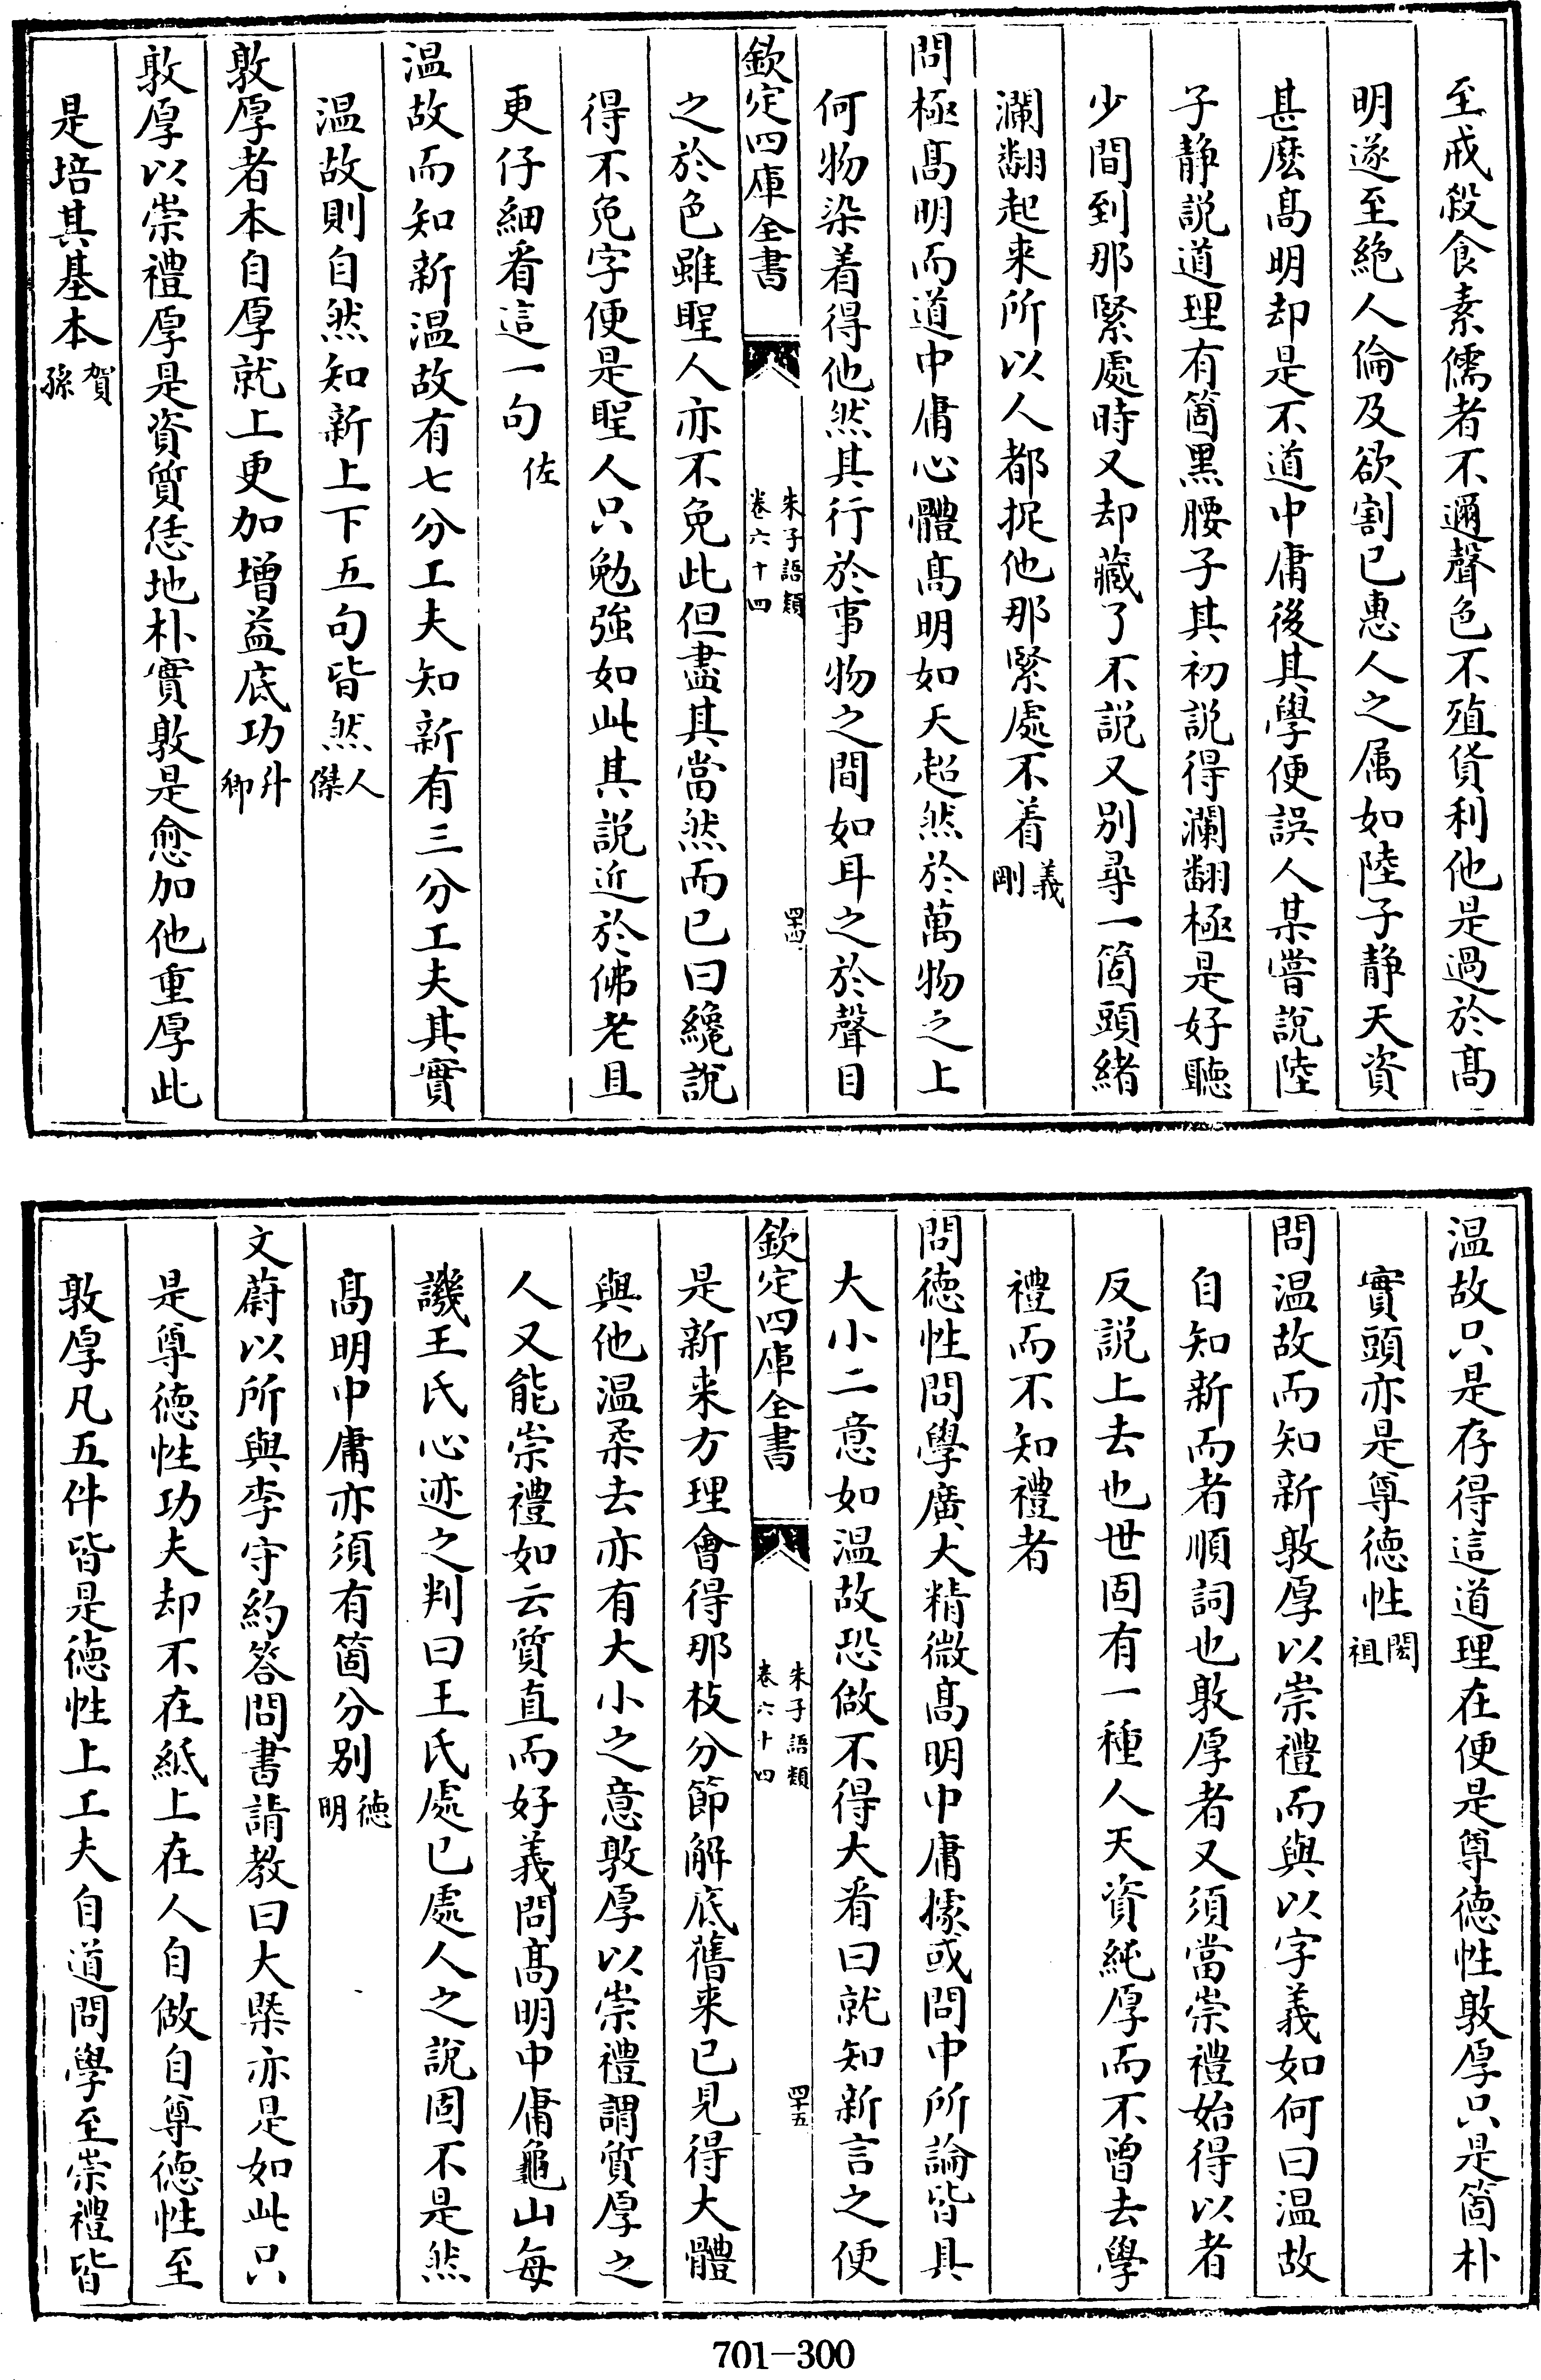 至戒殺食素儒者不邇聲色不殖貨利他是過於髙
明遂至絶人倫及欲割已惠人之属如陸子静天資
甚麽髙明却是不道中庸後其學便誤人某嘗說陸
子静説道理有箇黒腰子其初説得瀾翻極是好聽
少間到那緊處時又却藏了不説又别尋一箇頭緒
瀾翻起来所以人都捉他那緊處不着義剛
問極髙明而道中庸心體髙明如天超然於萬物之上
何物染着得他然其行於事物之間如耳之於聲目
欽定四庫全書
朱子語類
卷六十四
四十四
之於色雖聖人亦不免此但盡其當然而已曰纔說
得不免字便是聖人只勉強如此其說近於佛老且
更仔細看這一句佐
温故而知新温故有七分工夫知新有三分工夫其實
温故則自然知新上下五句皆然人傑
敦厚者本自厚就上更加增益底功升卿
敦厚以崇禮厚是資質恁地朴實敦是愈加他重厚此
是培其基本賀孫
温故只是存得這道理在便是尊徳性敦厚只是箇朴
實頭亦是尊徳性閎祖
問温故而知新敦厚以崇禮而與以字義如何曰温故
自知新而者順詞也敦厚者又須當崇禮始得以者
反説上去也世固有一種人天資純厚而不曾去學
禮而不知禮者
問徳性問學廣大精微髙明中庸據或問中所論皆具
大小二意如温故恐做不得大看曰就知新言之便
欽定四庫全書
朱子語類
卷六十四
四十五
是新来方理會得那枝分節解底舊来已見得大體
與他温柔去亦有大小之意敦厚以崇禮謂質厚之
人又能崇禮如云質直而好義問髙明中庸龜山每
譏王氏心迹之判曰王氏處已處人之說固不是然
髙明中庸亦須有箇分别徳明
文蔚以所與李守約答問書請教曰大槩亦是如此只
是尊徳性功夫却不在紙上在人自做自尊徳性至
敦厚凡五件皆是徳性上工夫自道問學至崇禮皆
701-300